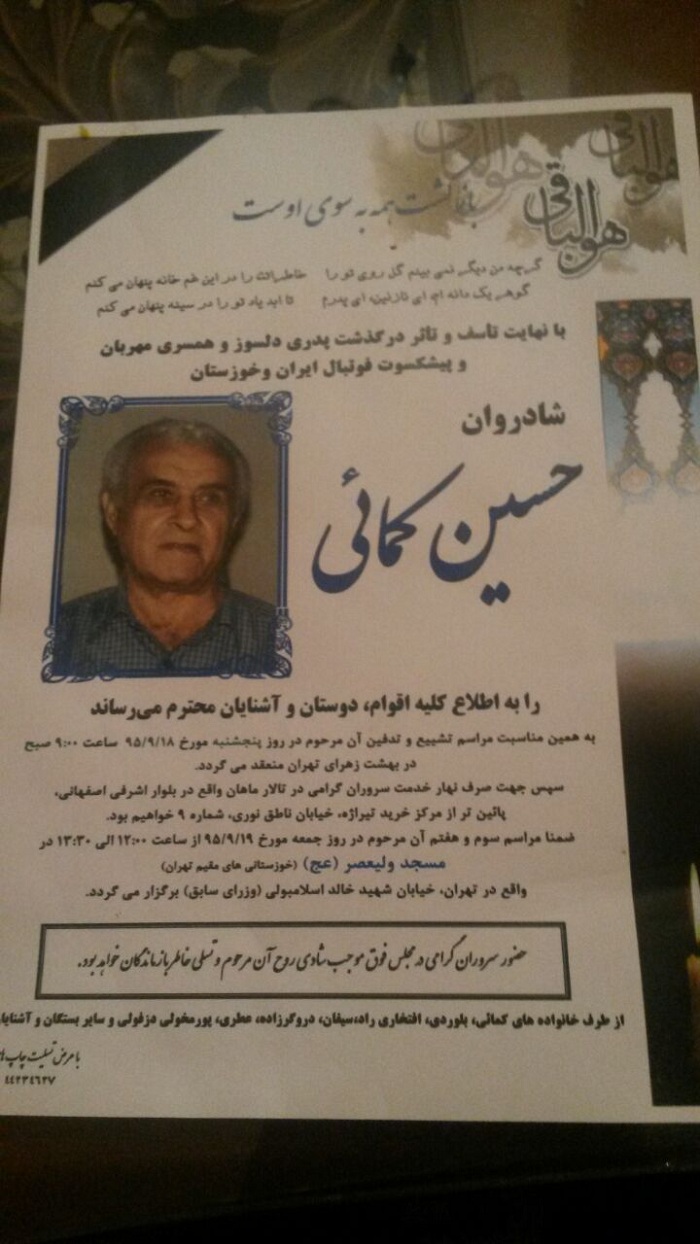 هوالباقی
هوالباقی
هوالباقی
بازگشت همه به سوی اوست
گرچه من دیگر نمی بینم گل روی تو را خاطراتت را در این غم خانه پنهان می کنم
گوهر یک دانه ام، ای نازنین، ای پدرم تا ابد یاد تو را در سینه پنهان می کنم
با نهایت تأسف و تأثر درگذشت پدری دلسوز و همسری مهربان
و پیشکسوت فوتبال ایران وخوزستان
شادروان
حسین کمائی
را به اطلاع کلیه اقوام، دوستان و آشنایان محترم می‌رساند
به همین مناسبت مراسم تشییع و تدفین آن مرحوم در روز پنجشنبه مورخ ۹۵/۹/۱۸ ساعت ۹:۰۰ صبح
در بهشت زهرای تهران منعقد می گردد.
سپس جهت صرف نهار خدمت سروران گرامی در تالار ماهان واقع در بلوار اشرفی اصفهانی،
پائین تر از مرکز خرید تیراژه، خیابان ناطق نوری، شماره ۹ خواهیم بود.
ضمنا مراسم سوم و هفتم آن مرحوم در روز جمعه مورخ ۹۵/۹/۱۹ از ساعت ۱۲:۰۰ الی ۱۳:۳۰ در
مسجد ولیعصر (عج) (خوزستانی های مقیم تهران)
واقع در تهران، خیابان شهید خالد اسلامبولی (وزرای سابق) برگزار می گردد.
حضور سروران گرامی در مجلس فوق موجب شادی روح آن مرحوم و تسلی خاطر بازماندگان خواهد بود.
از طرف خانواده های کمائی، بلوردی، افتخاری راد،سیفان، دروگرزاده، عطری، پورمخولی دزفولی و سایر بستگان و آشنایان
با عرض تسلیت چاپ
۴۴۲۳۴۶۲۷